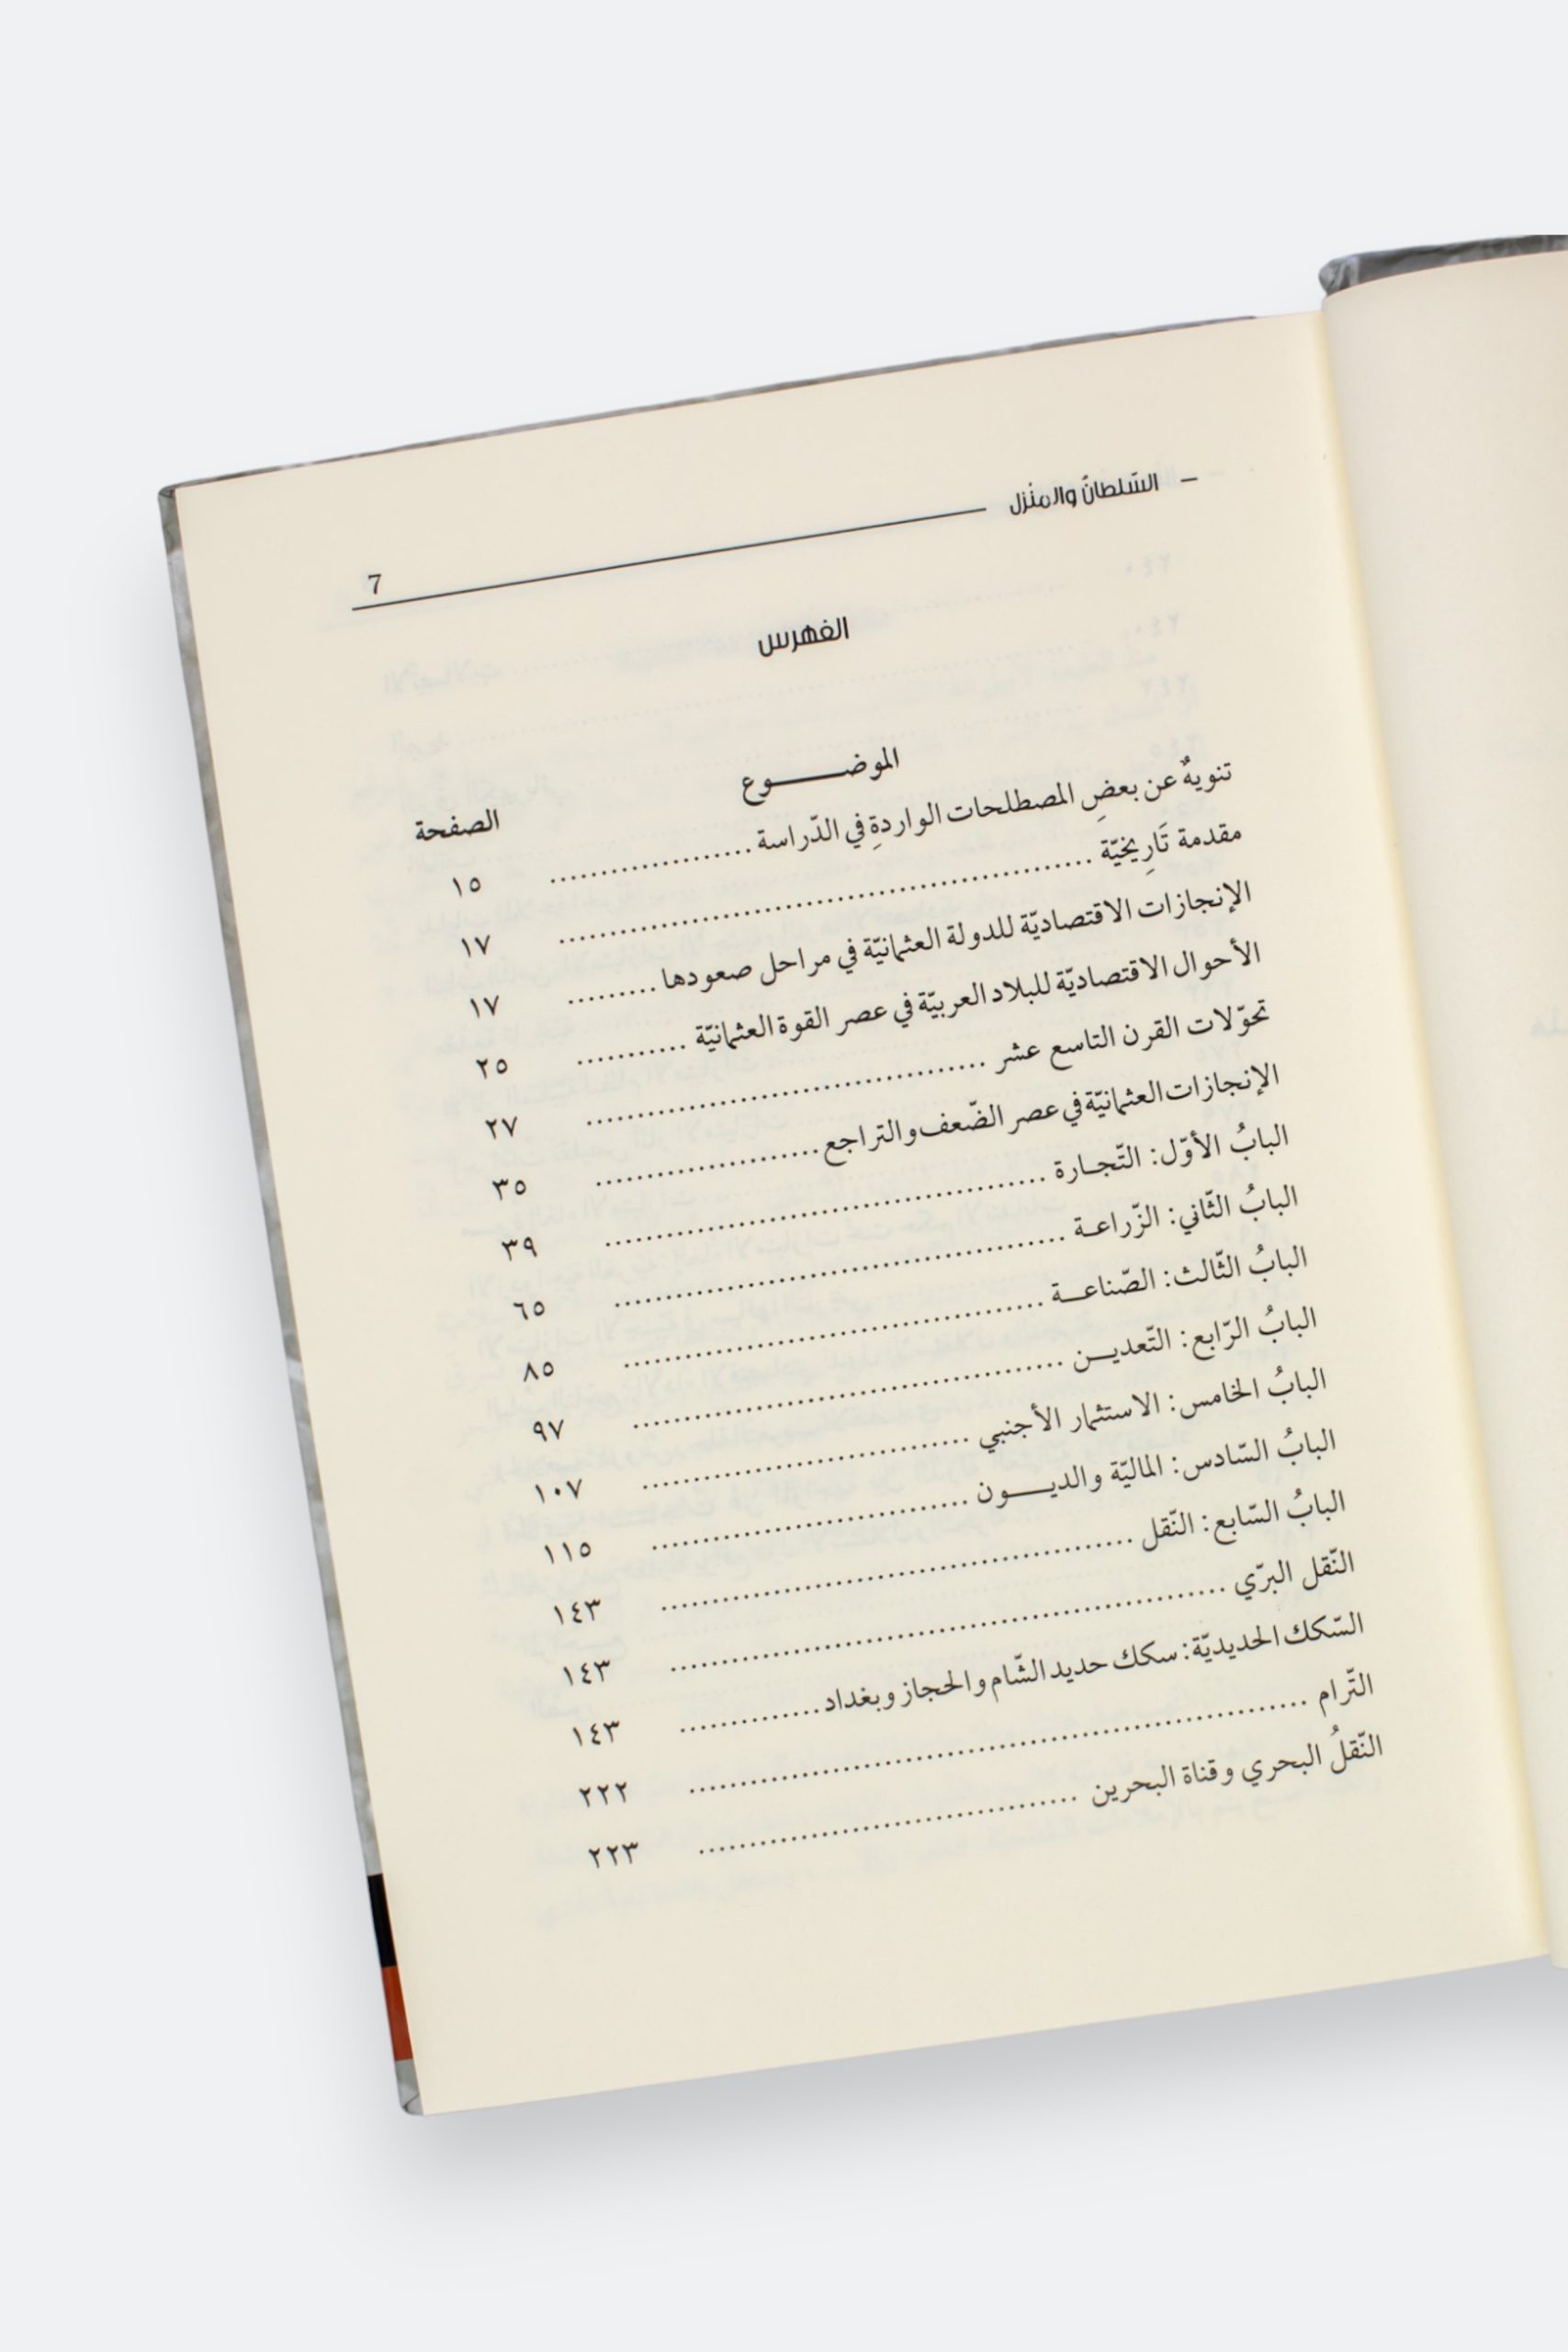 السّلطانُ والمنْزل –
7
الفهرس
الموضـــــــوع
الصفحة
تنويهٌ عن بعضِ المصطلحات الواردةِ في الدّراسة .................... ١٥
مقدمة تَارِيخيّة .................................................... ١٧
الإنجازات الاقتصاديّة للدولة العثمانيّة في مراحل صعودها ......... ١٧
الأحوال الاقتصاديّة للبلاد العربيّة في عصر القوة العثمانيّة ........... ٢٥
تحوّلات القرن التاسع عشر ....................................... ٢٧
الإنجازات العثمانيّة في عصر الضّعف والتراجع ...................... ٣٥
البابُ الأوّل: التّجـارة ........................................... ٣٩
البابُ الثّاني: الزّراعـة ............................................ ٦٥
البابُ الثّالث: الصّناعـــة ......................................... ٨٥
البابُ الرّابع: التّعديــن .......................................... ٩٧
البابُ الخامس: الاستثمار الأجنبي ................................ ١٠٧
البابُ السّادس: الماليّة والديـــــون ............................... ١١٥
البابُ السّابع: النّقل .............................................. ١٤٣
النّقل البرّي ...................................................... ١٤٣
السّكك الحديديّة: سكك حديد الشّام والحجاز وبغداد .............. ١٤٣
التّرام ............................................................ ٢٢٢
النّقلُ البحري وقناة البحرين ..................................... ٢٢٣